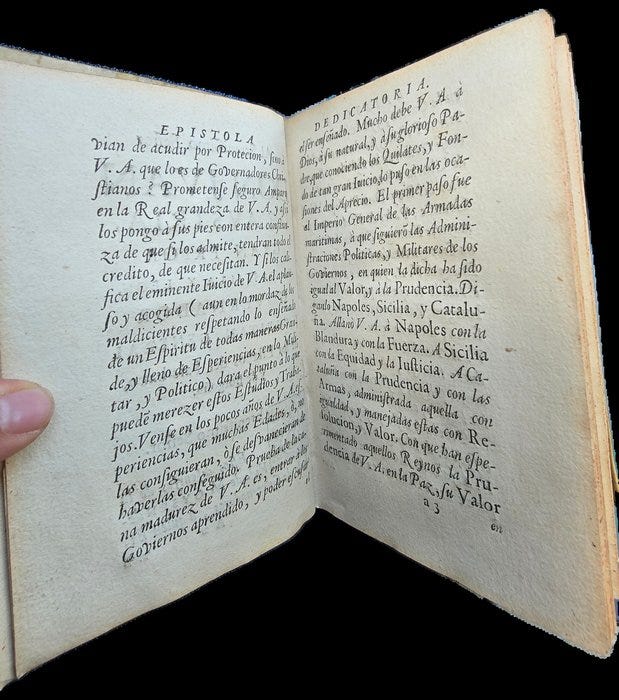 EPISTOLA
vian de acudir por Protecion, sino à
V. A. que lo es de Governadores Chri-
stianos? Prometense seguro Amparo
en la Real grandeza de V. A. y assi
los pongo à sus pies con entera confian-
za de que si los admite, tendran todo el
credito, de que necesitan. Y si los cali-
fica el eminente Iuicio de V. A. el aplau-
so y acogida (aun en lo mordaz de los
maldicientes respetando lo enseñado
de un Espiritu de todas maneras Gran-
de, y lleno de Esperiencias, en lo Mili-
tar, y Politico) dara el punto à lo que
puede merezer estos Estudios y Traba-
jos. Vense en los pocos años de V. A. es-
periencias, que muchas Edades, ò, no
las consiguieran, ò se desvanecieran de
haverlas conseguido. Prueba de la
na madurez de V. A. es, entrar à los
Goviernos aprendido, y poder escusar
el
DEDICATORIA.
el ser enseñado. Mucho debe V. A à
Dios, à su natural, y à su glorioso Pa-
dre, que conociendo los Quilates, y Fon-
do de tan gran Iuicio, lo puso en las oca-
siones del Aprecio. El primer paso fue
al Imperio General de las Armadas
maritimas, à que siguierõ las Admini-
straciones Politicas, y Militares de los
Goviernos, en quien la dicha ha sido
igual al Valor, y à la Prudencia. Di-
ganlo Napoles, Sicilia, y Catalu-
ña. Allanò V. A. à Napoles con la
Blandura y con la Fuerza. A Sicilia
con la Equidad y la Iusticia. A Ca-
taluña con la Prudencia y con las
Armas, administrada aquella con
igualdad, y manejadas estas con Re-
solucion, y Valor. Con que han espe-
rimentado aquellos Reynos la Pru-
dencia de V. A. en la Paz, su Valor
a 3
en